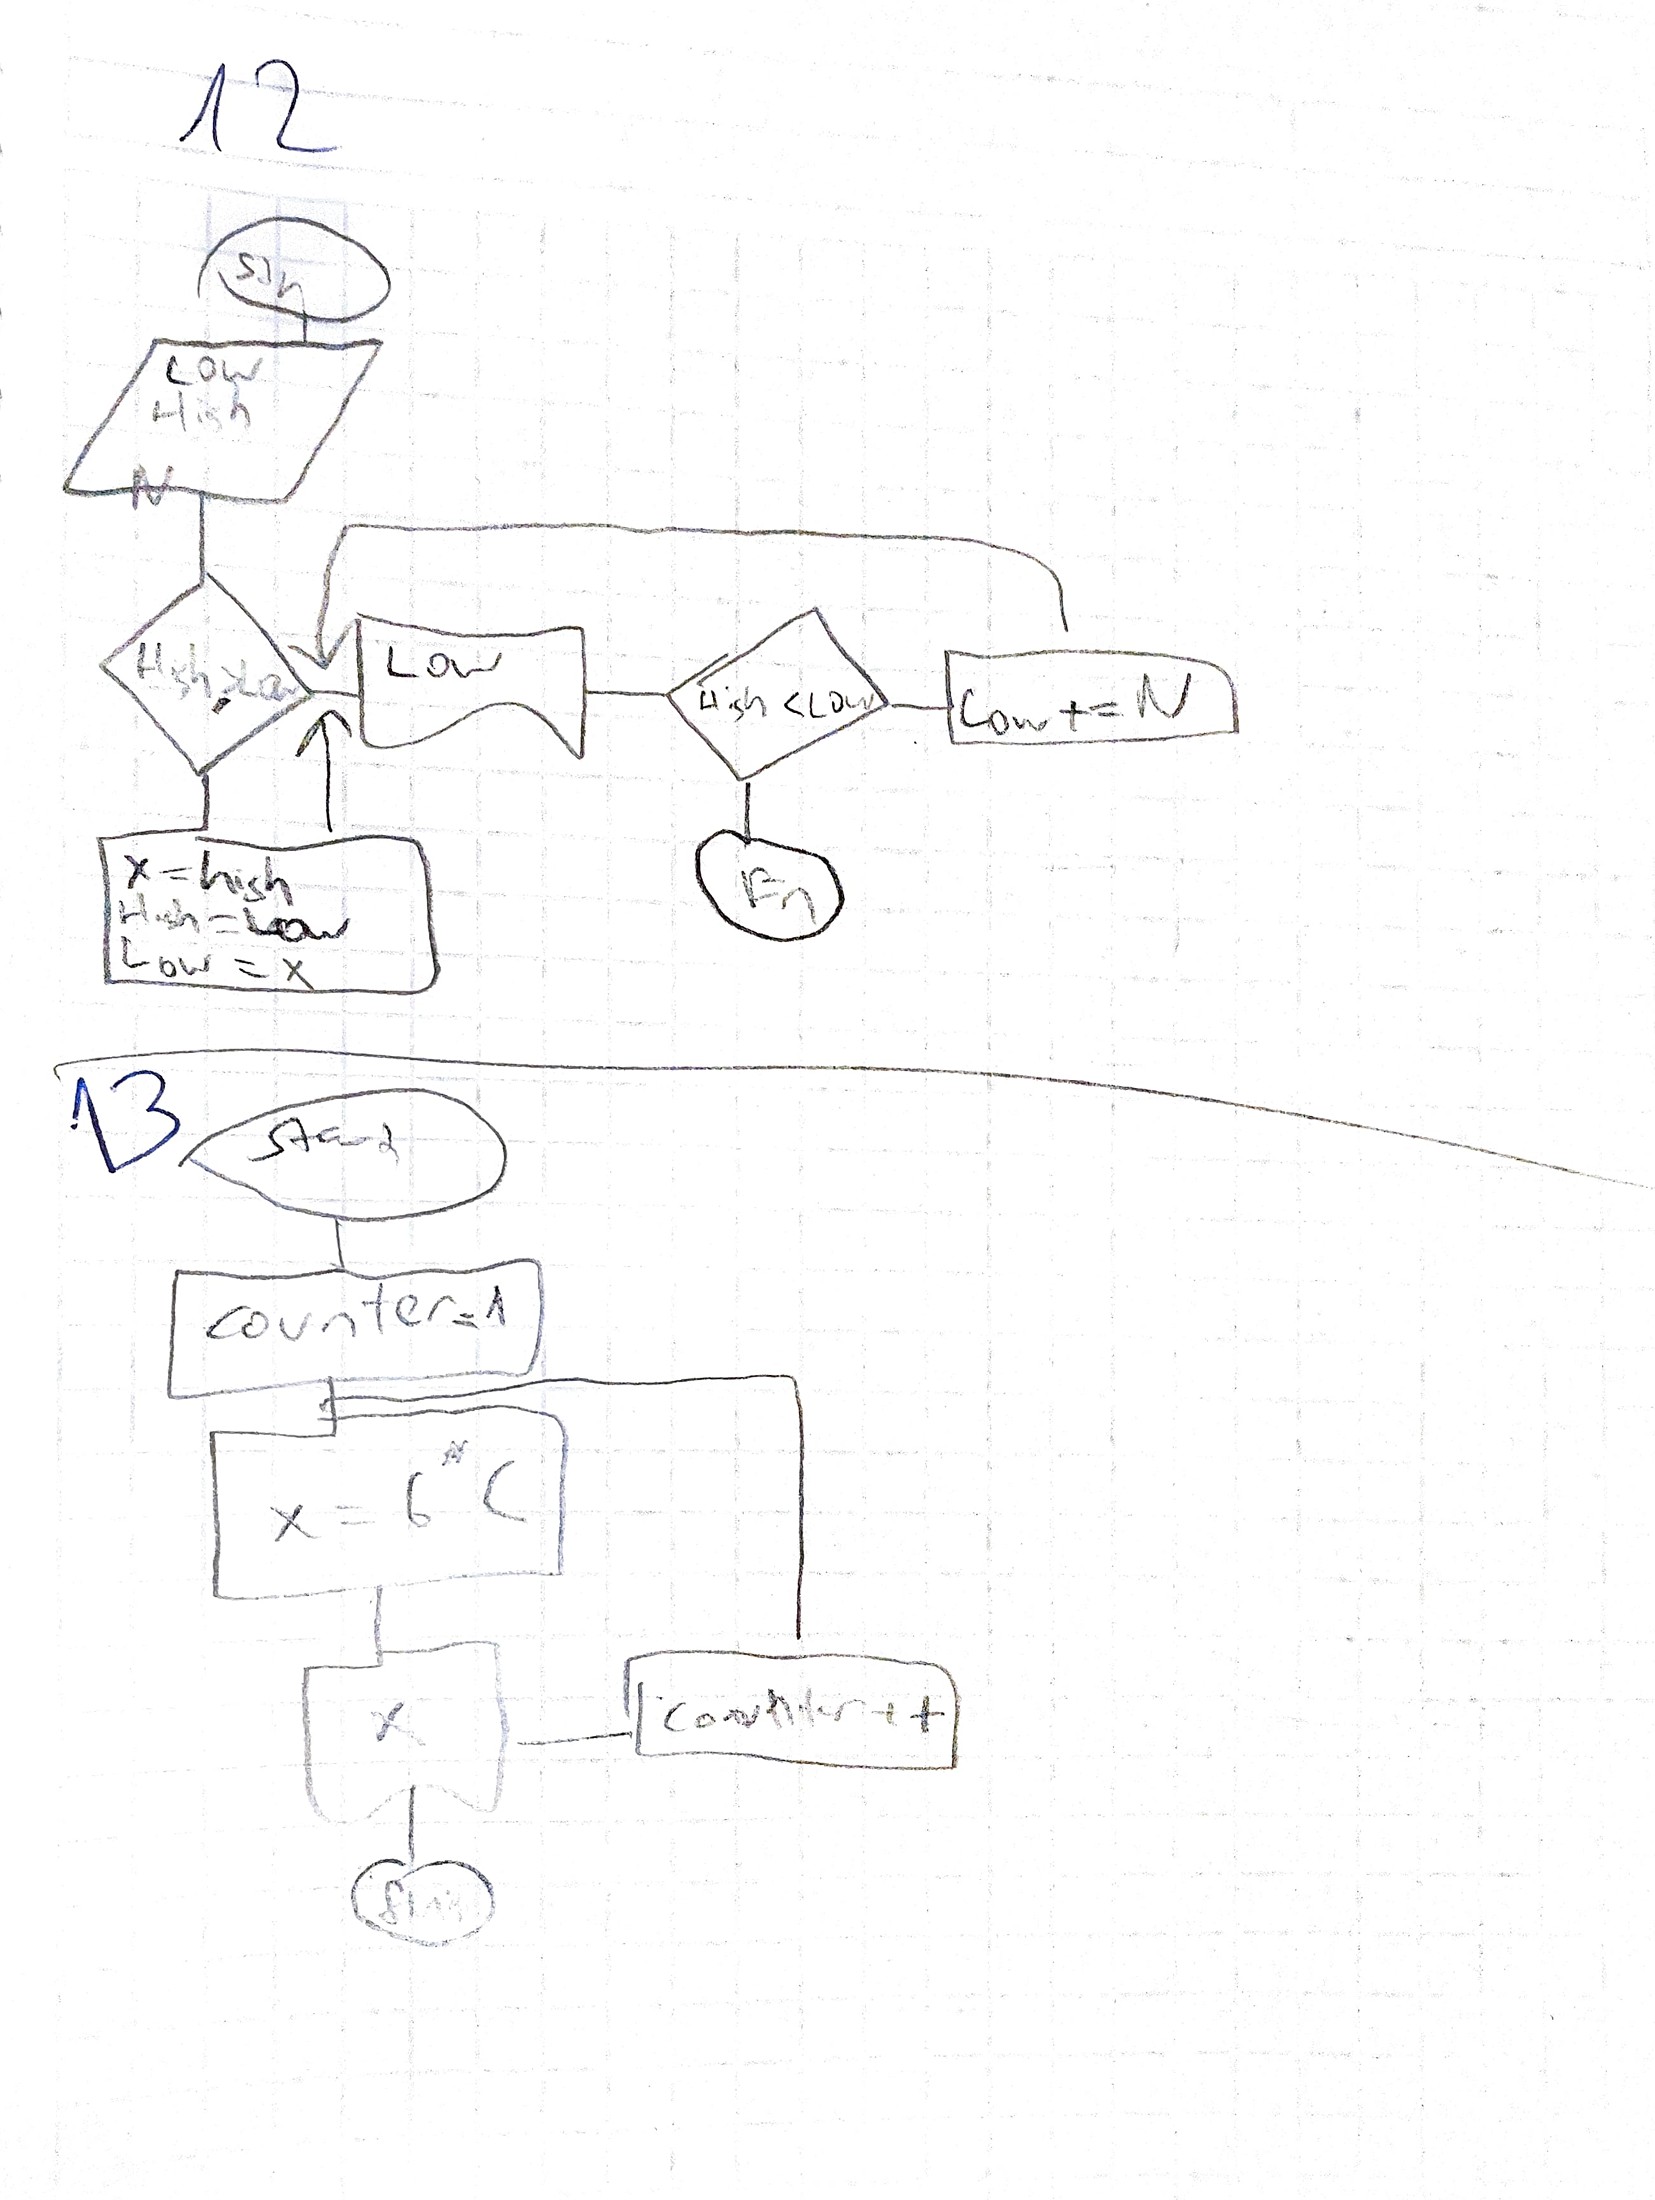 12
Low
High
N
High > Low
Low
High < Low
Low += N
x = high
High = Low
Low = x
Fn
13
counter = 1
x = 6 * C
x
counter ++